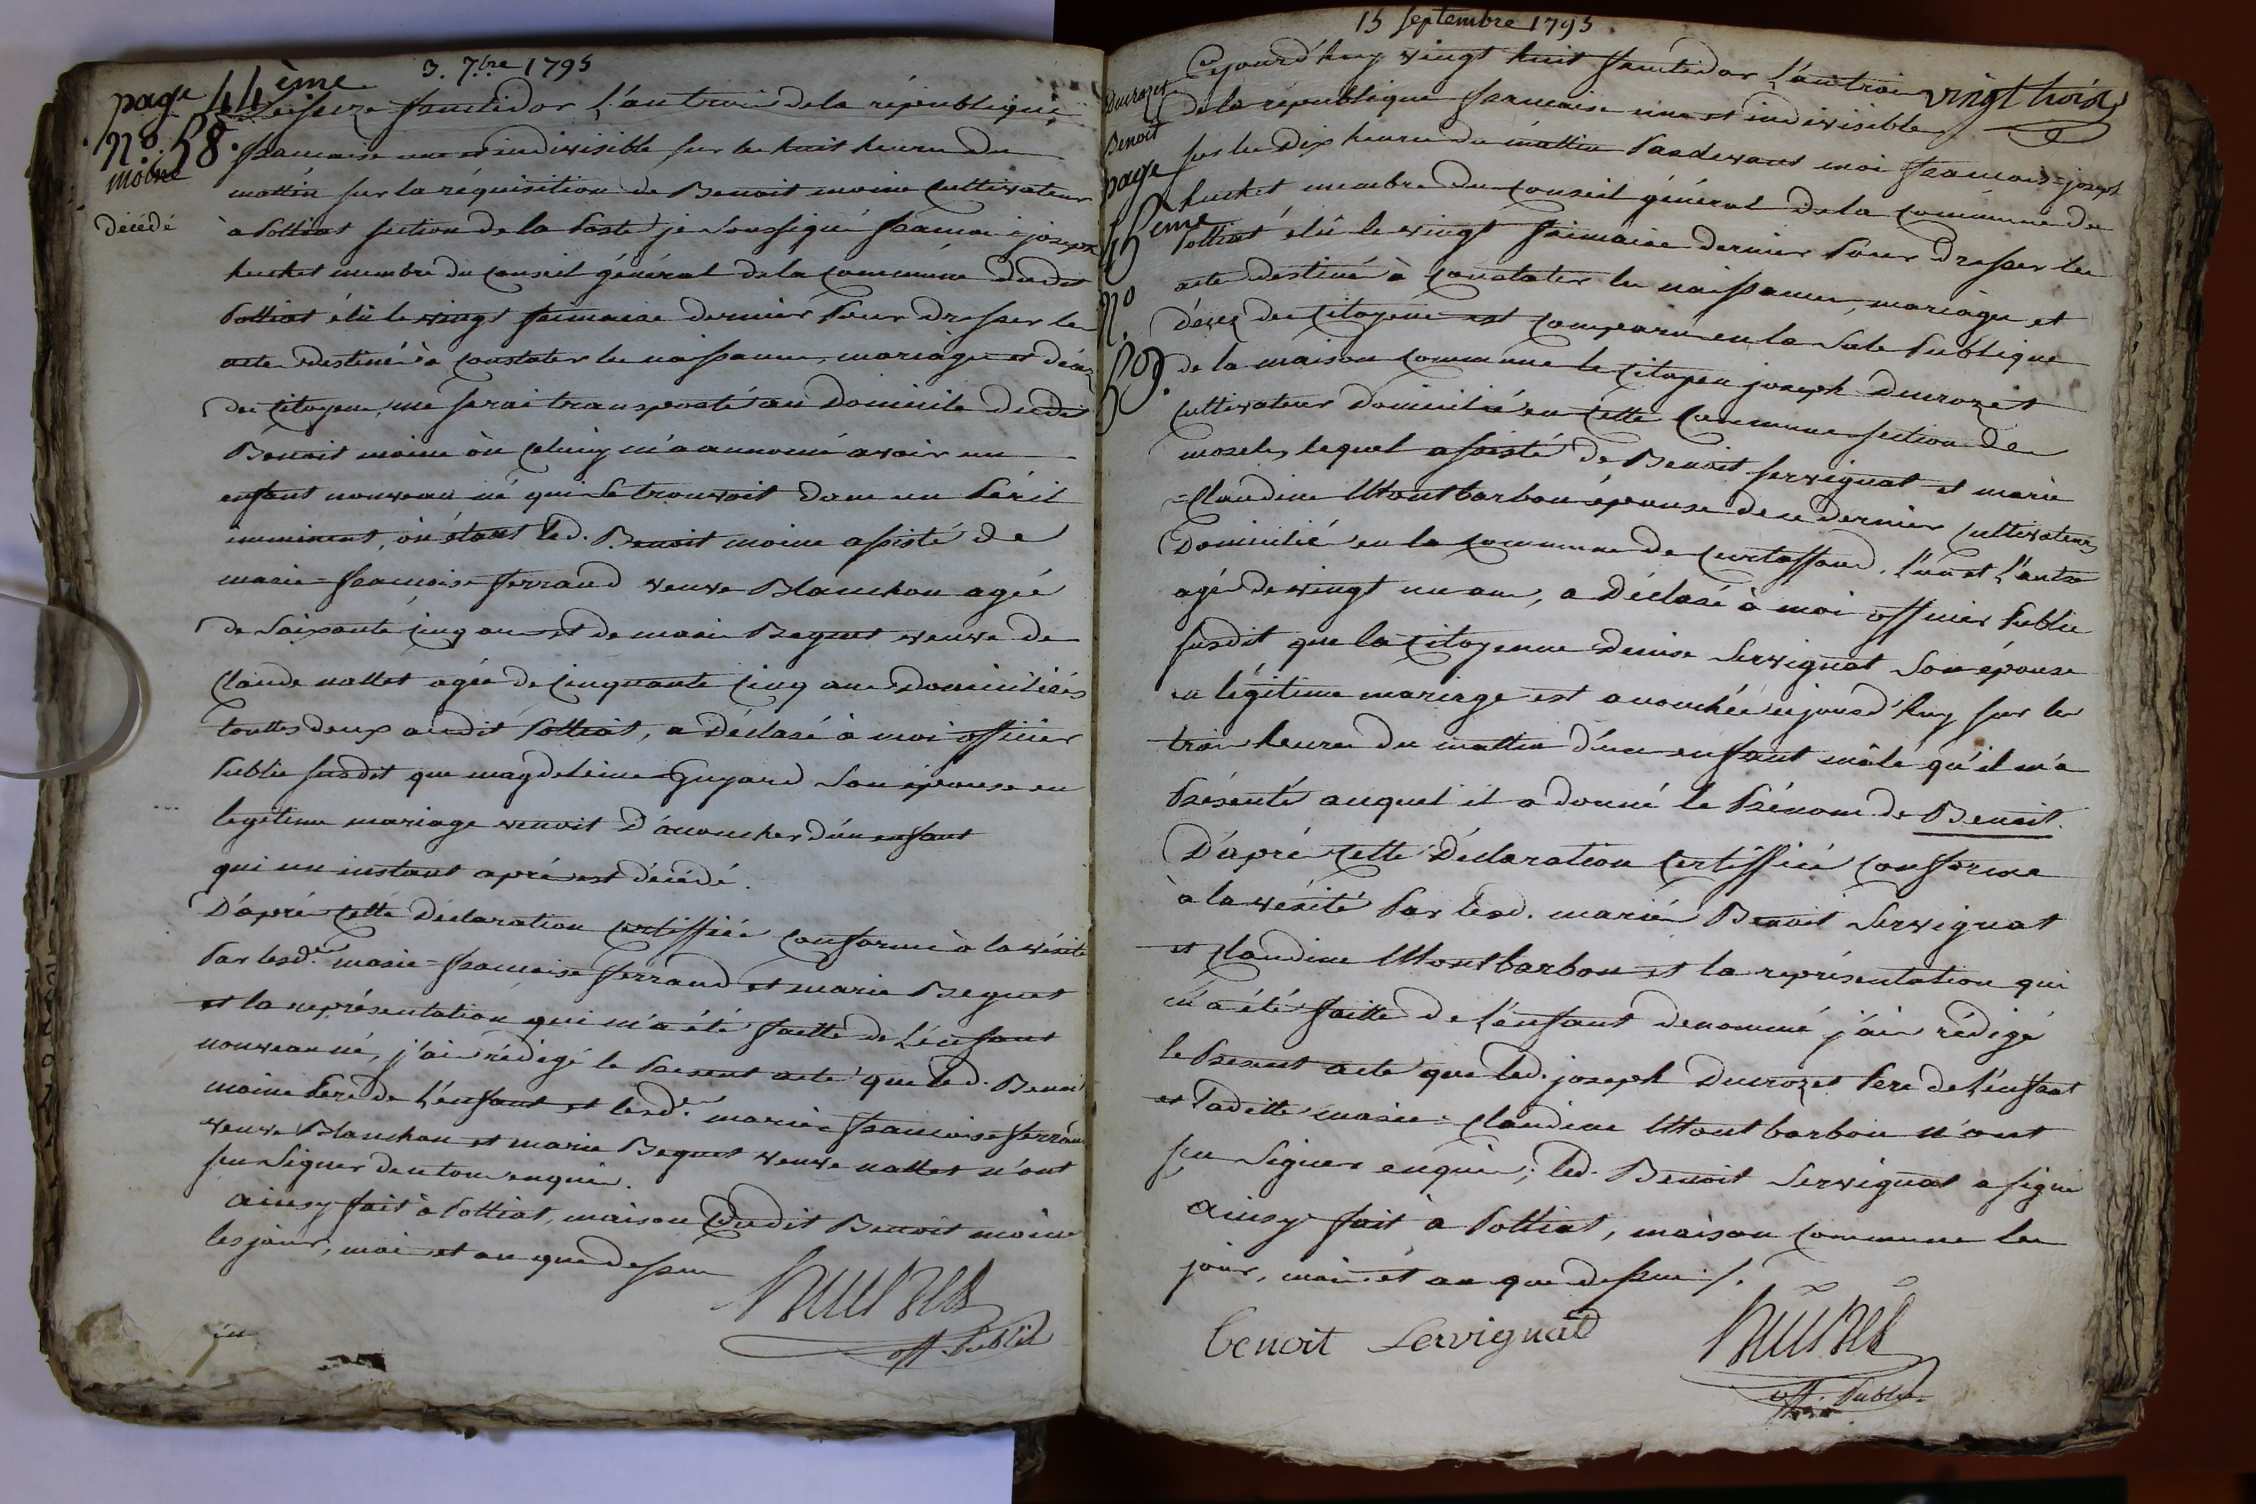 3. 7.bre 1795
page 44ème
N.o 58.
moine
décédé
Le seize fructidor l'an trois de la république
francaise une et indivisible sur les huit heures du
mattin sur la réquisition de Benoit moine cultivateur
à Polliat section de la Poste je soussigné francois=joseph
huchet membre du conseil général de la commune dudit
Polliat élû le vingt frimaire dernier pour dresser les
actes destinés à constater les naissances, mariages et décez
des citoyens, me serai transporté au domicile dudit
Benoit moine où celuicy m'a annoncé avoir un
enfant nouveau né qui se trouvoit dans un péril
imminent, où étant led. Benoit moine assisté de
marie=francoise ferrand veuve Blanchon agée
de soixante cinq ans et de marie Beguet veuve de
Claude nallet agée de cinquante cinq ans domiciliées
touttes deux audit Polliat, a déclaré à moi officier
Public susdit que magdeleine Guyard son épouse en
legitime mariage venoit d'accoucher d'un enfant
qui un instant aprés est décédé.
D'aprés cette déclaration certiffiée conforme à la vérité
Par lesd.es marie=francoise ferrand et marie Beguet
et la représentation qui m'a été faitte de l'enfant
nouveau né, j'ai rédigé le présent acte que led. Benoit
moine Pere de l'enfant et lesd.es marie francoise ferrand
veuve Blanchon et marie Beguet veuve nallet n'ont
sçu signer de ce tous enquis.
ainsy fait à Polliat, maison dudit Benoit moine
les jour, mois et an que dessus
huchet
off. Public
15 septembre 1795
vingt trois
Ducrozet
Benoit
page
45ème
N.o
59.
Cejourd'huy vingt huit fructidor l'an trois
de la république francaise une et indivisible
sur les dix heures du mattin Pardevant moi francois=joseph
huchet membre du conseil général de la commune de
Polliat élû le vingt frimaire dernier Pour dresser les
actes destinés à constater les naissances, mariages et
décez des citoyens est comparu en la sale Publique
de la maison commune le citoyen joseph Ducrozet
cultivateur domicilié en cette commune section de
lequel assisté de Benoit servignat et marie
=Claudine Montbarbon épouse de ce dernier cultivateurs
domiciliés en la commune de Curtaffond, l'un et l'autre
agés de vingt un ans, a déclaré à moi officier Public
susdit que la citoyenne Denise Servignat son épouse
en légitime mariage est accouchée cejourd'huy sur les
trois heures du mattin d'un enfant mâle qu'il m'a
Présenté auquel il a donné le Prénom de Benoit.
D'aprés cette déclaration certiffiée conforme
à la vérité Par lesd. mariés Benoit Servignat
et Claudine Montbarbon et la représentation qui
m'a été faitte de l'enfant denommé j'ai rédigé
le Présent acte que led. joseph Ducrozet Pere de l'enfant
et laditte marie=Claudine Montbarbon n'ont
sçu signer enquis; led. Benoit Servignat a signé
ainsy fait à Polliat, maison commune les
jour, mois et an que dessus ./.
benoit Servignat
huchet
off. Public